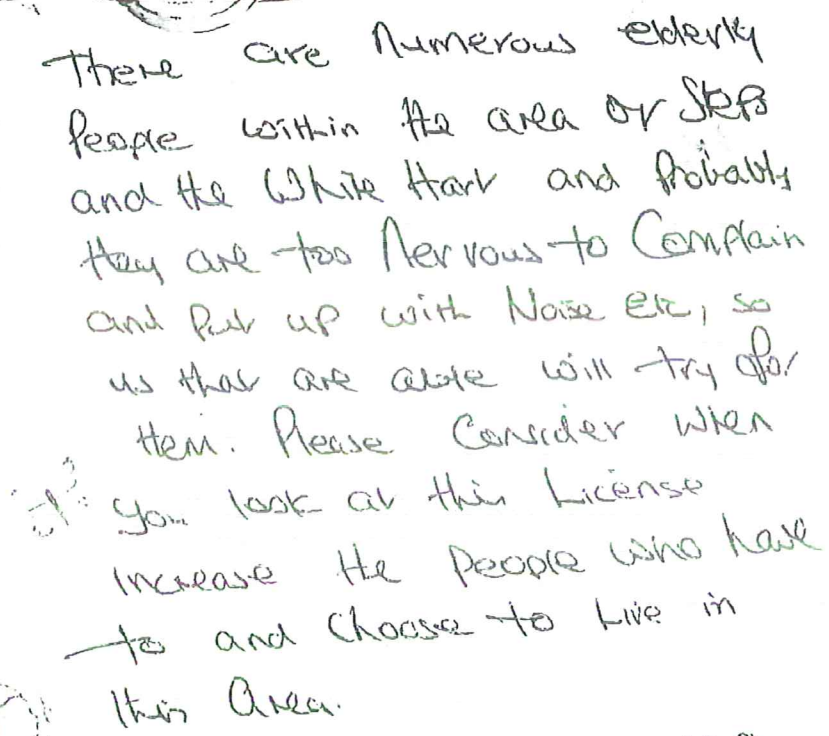 There are Numerous elderly
People within the area or Steps
and the White Hart and Probably
they are too Nervous to Complain
and Put up with Noise etc, so
us that are able will try for
them. Please Consider when
you look at this License
increase the People who have
to and Choose to Live in
this Area.